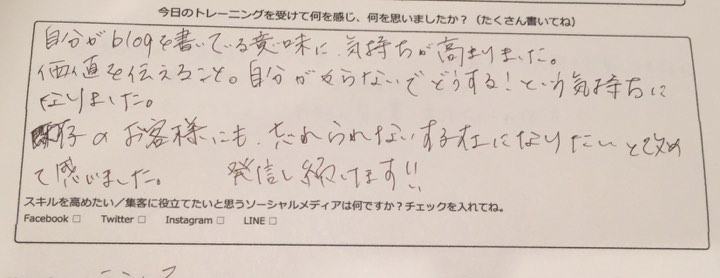 今日のトレーニングを受けて何を感じ、何を思いましたか？（たくさん書いてね）
自分がblogを書いている意味に、気持ちが高まりました。
価値を伝えること。自分がやらないでどうする！という気持ちに
なりました。
既存のお客様にも、忘れられない存在になりたいと改め
て感じました。 発信し続けます!!
スキルを高めたい／集客に役立てたいと思うソーシャルメディアは何ですか？チェックを入れてね。
Facebook □ Twitter □ Instagram □ LINE □